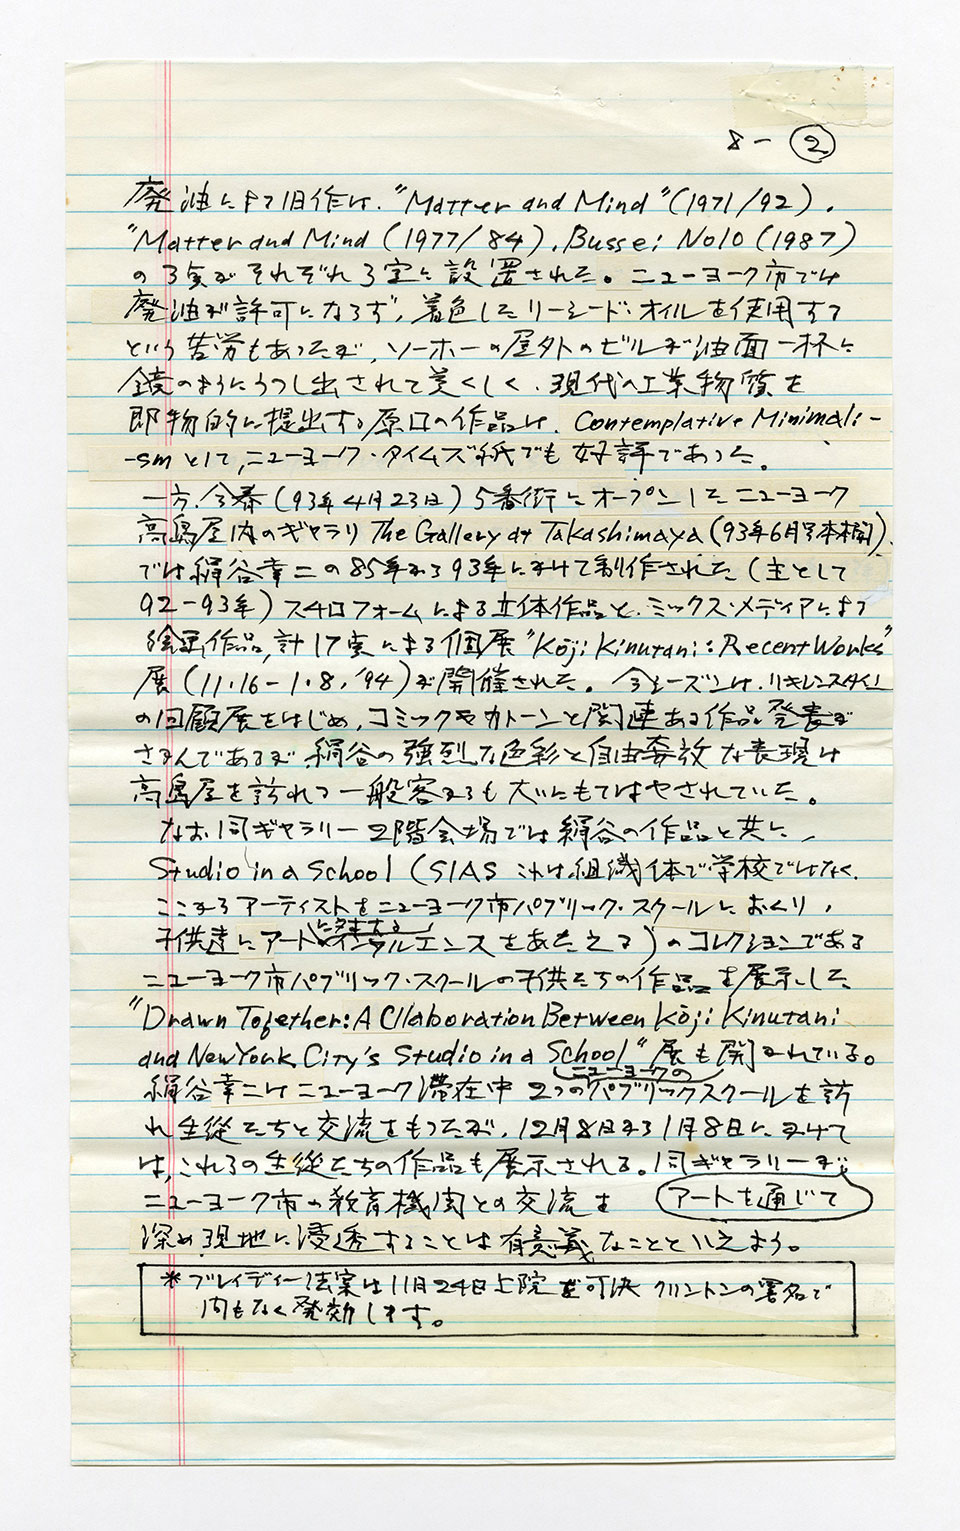 8-②
廃油による旧作は、"Matter and Mind"(1971/92)、
"Matter and Mind (1977/84)、Bussei No10 (1987)
の3点がそれぞれ3室に設置された。ニューヨーク市では
廃油が許可にならず、着色したリーシード・オイルを使用する
という苦労もあったが、ソーホーの屋外のビルが油面一杯に
鏡のようにうつし出されて美くしく、現代の工業物質を
即物的に提出する原口の作品は、Contemplative Minimali-
-smとして、ニューヨーク・タイムズ紙でも好評であった。
一方、今春(93年4月23日)5番街にオープンしたニューヨーク
高島屋内のギャラリ The Gallery at Takashimaya (93年6月号本欄)
では絹谷幸二の85年から93年にかけて制作された(主として
92-93年)スチロフォームによる立体作品と、ミックス・メディアによる
絵画作品、計17点による個展"Kōji Kinutani: Recent Works"
展(11.16-1.8,'94)が開催された。今シーズンは、リキテンスタイン
の回顧展をはじめ、コミックやカトーンと関連ある作品発表が
さかんであるが、絹谷の強烈な色彩と自由奔放な表現は
高島屋を訪れる一般客からも大いにもてはやされていた。
なお、同ギャラリー2階会場では絹谷の作品と共に、
Studio in a School (SIAS これは組織体で学校ではなく、
ここからアーティストをニューヨーク市パブリック・スクールにおくり、
子供達にアートインフルエンスをあたえる)のコレクションである
ニューヨーク市パブリック・スクールの子供たちの作品を展示した
"Drawn Together: A Cllaboration Between Kōji Kinutani
and New York City's Studio in a School"展も開かれている。
ニューヨークの
絹谷幸二はニューヨーク滞在中 2つのパブリックスクールを訪
れ生徒たちと交流をもったが、12月8日から1月8日にかけて
は、これらの生徒たちの作品も展示される。同ギャラリーが、
ニューヨーク市の教育機関との交流を アートを通じて
深め現地に浸透することは有意義なことといえよう。
*ブレイディー法案は11月24日上院を可決 クリントンの署名で
間もなく発効します。